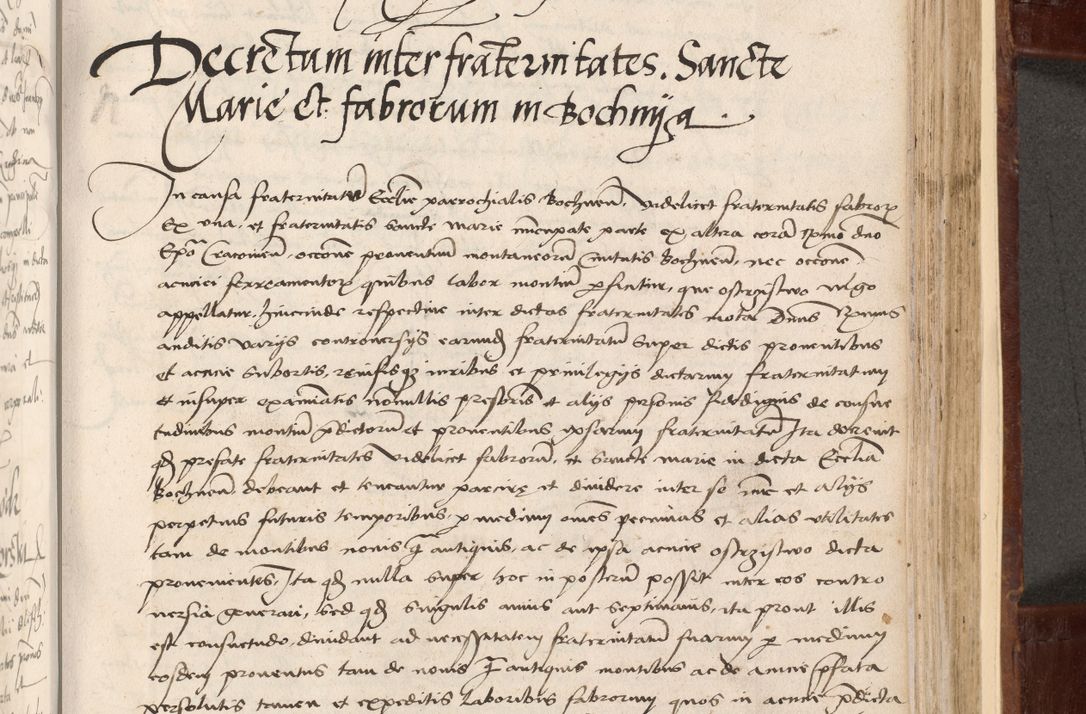 Decretum inter fraternitates Sancte
Marie et fabrorum in Bochnya.
In causa fraternitatu Ecclie parrochialis Bochnen. videlicet fraternitatis fabror
Ex vna, et fraternitatis Sancte Marie nuncupate parte ex altera cora Rmo dno
Epo Cracovien, occone proventuum montanorum Civitatis Bochnen, nec occone
acuciei ferramentor quibus labor montiu pficitur, que ostrzistwo vlgo
appellatur, hincinde respective inter dictas fraternitates mota Dnus Rmus
auditis varijs controversijs earund fraternitatum super dictis proventibus
et acucie subortis, revisisqz iuribus et privilegijs dictarum fraternitatum
et insuper examinatis nonullis presoris et alijs personis fidedignis de consue
tudinibus montiu pdictorum et proventibus ipsarum fraternitatu Ita decrevit
qd prefate fraternitates videlicet fabroru, et Sancte Marie in dicta Ecclia
Bochnen debeant et teneantur parciri et dividere inter se nunc et alijs
perpetuis futuris temporibus, p medium omes pecunias et alias vtilitates
tam de montibus novis q antiquis, ac de ipsa acucie ostrzistwo dicta
provenientes, Ita qd nulla super hoc in posteru possit inter eos contro
versia generari, sed qd singulis annis aut septimanis, ita prout illis
est consuetudo, dividant ad necessitatem fraternitatu suarum p medium
eosdem proventus tam de novis q antiquis montibus ac de acucie pfata
persolutis tamen et expeditis laboribus fabrorum quos in acucie pdicta